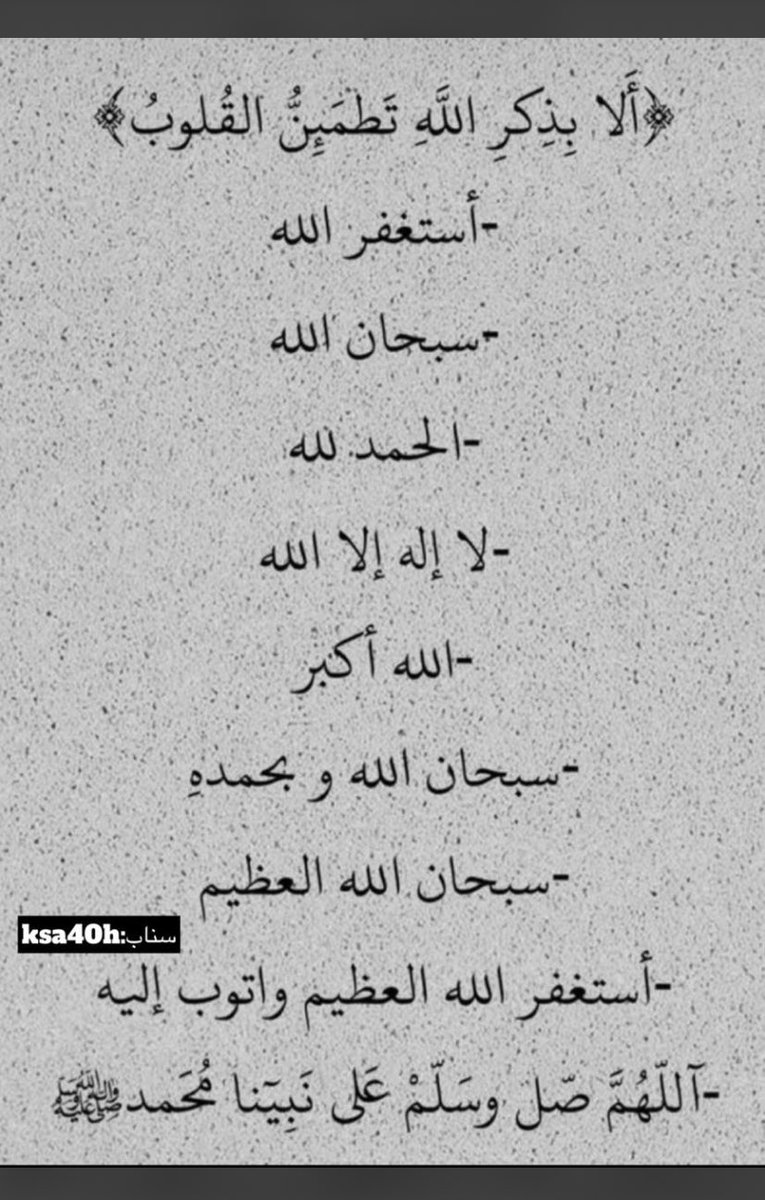 ﴿أَلا بِذِكرِ اللَّهِ تَطمَئِنُّ القُلوبُ﴾
-أستغفر الله
-سبحان الله
-الحمد لله
-لا إله إلا الله
-الله أكبر
-سبحان الله و بحمدهِ
-سبحان الله العظيم
سناب:ksa40h
-أستغفر الله العظيم واتوب إليه
-آللّهُمَّ صّل وسَلّمْ عَلى نَبِيَنا مُحَمدﷺ